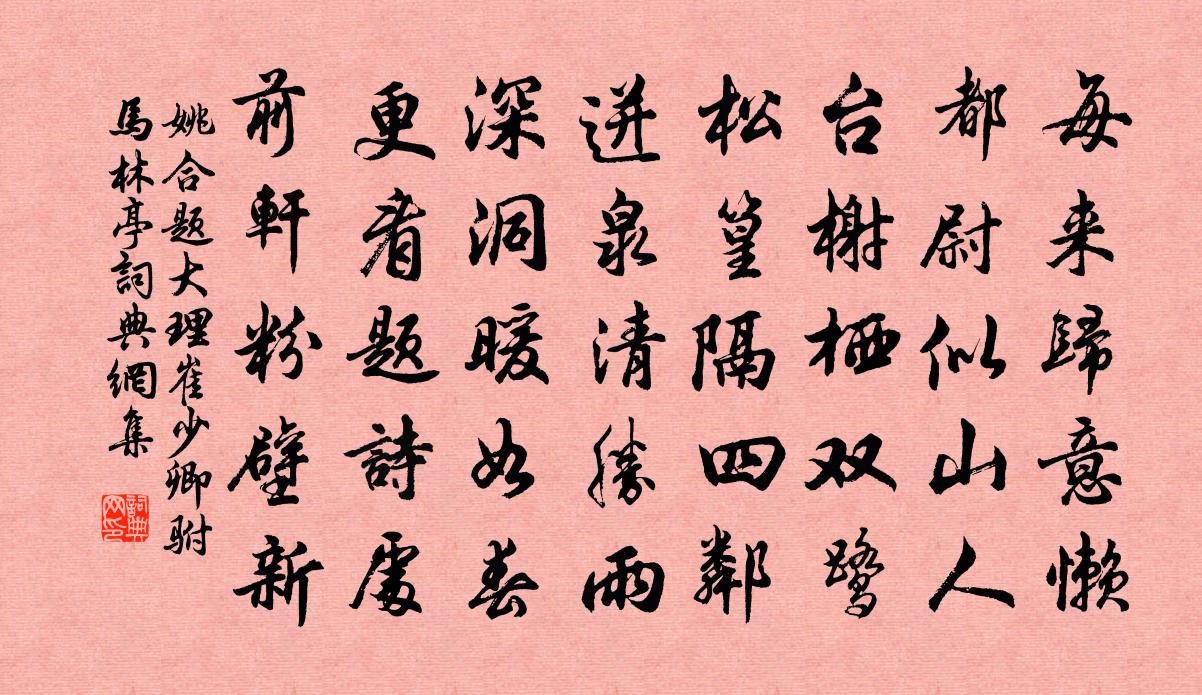 每来歸意懒
都尉似山人
台榭栖双鹭
松篁隔四鄰
迸泉清勝雨
深洞暖如春
更看題詩處
前軒粉壁新
姚合題大理崔少卿駙
馬林亭詞典網集
詞典
网印